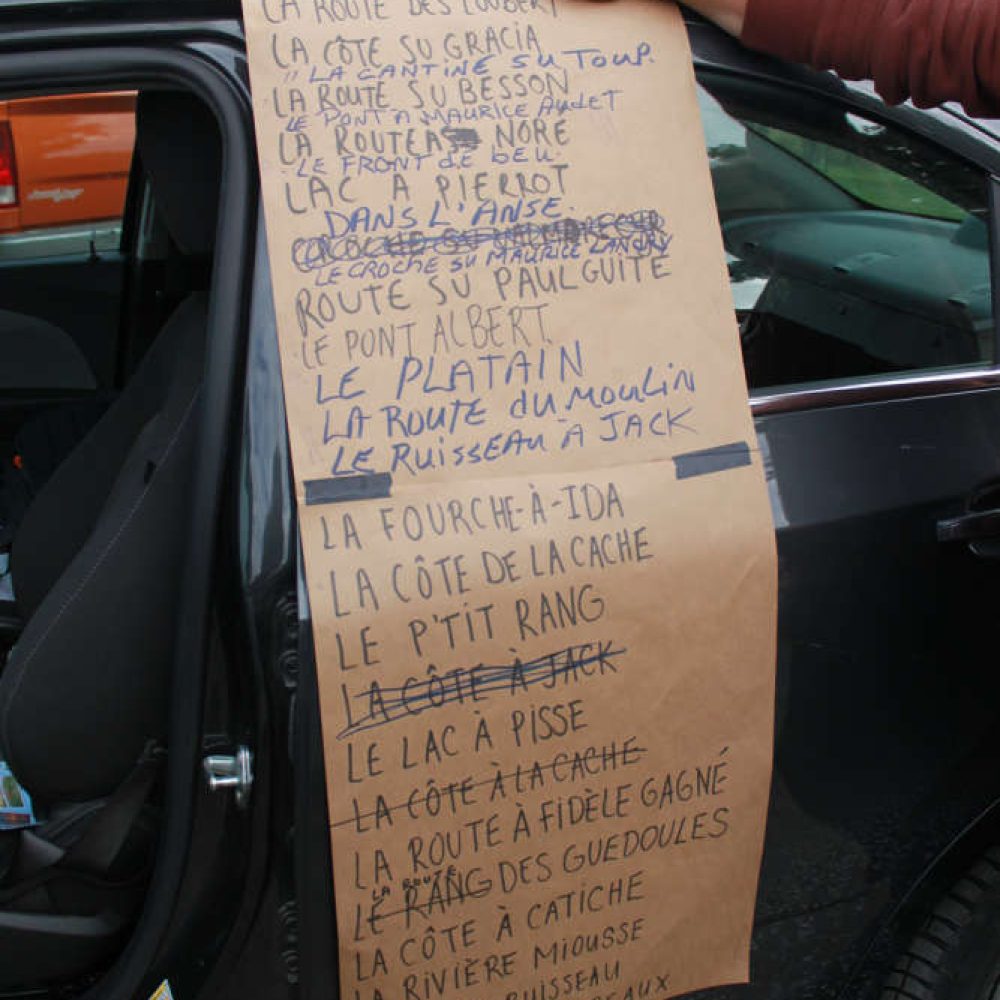 LA ROUTE DES LOUBERT
LA CÔTE SU GRACIA
" LA CANTINE SU TOUP.
LA ROUTE SU BESSON
LE PONT A MAURICE AUDET
LA ROUTE A NORÉ
LE FRONT de beu.
LAC A PIERROT
DANS L'ANSE.
LE CROCHE SU MAURICE LANDRY
ROUTE SU PAUL GUITÉ
LE PONT ALBERT
LE PLATAIN
LA ROUTE du MOULIN
LE RUISSEAU À JACK
LA FOURCHE-À-IDA
LA CÔTE DE LA CACHE
LE P'TIT RANG
LA CÔTE À JACK
LE LAC À PISSE
LA CÔTE À LA CACHE
LA ROUTE À FIDÈLE GAGNÉ
LA ROUTE
LE RANG DES GUEDOULES
LA CÔTE À CATICHE
LA RIVIÈRE MIOUSSE
RUISSEAU
EAUX